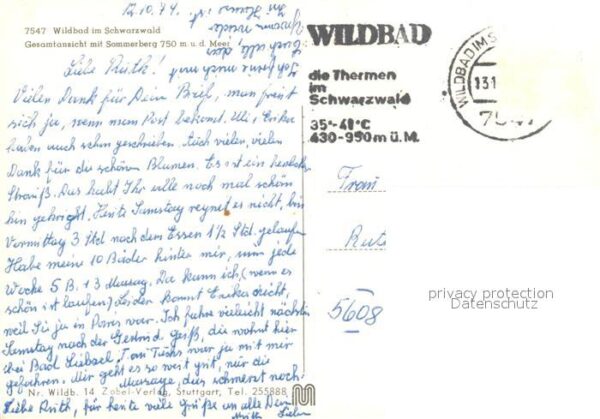 12.10.74
7547 Wildbad im Schwarzwald
Gesamtansicht mit Sommerberg 750 m u. d. Meer
Liebe Ruth!
Vielen Dank für Dein Brief, man freut
sich ja, wenn man Post bekomt. Uli, Erika
haben auch schon geschrieben. Euch vielen, vielen
Dank für die schönen Blumen. Es ist ein herrlicher
Strauß. Das habt Ihr alle noch mal schön
hin gekrigt. Heute Samstag regnet es nicht, bin
Vormittag 3 Std nach dem Essen 1½ Std. gelaufen
Habe meine 10 Bäder hinter mir, nun jede
Woche 5 B. 13 Massag. Da kann ich, (wenn es
schön ist laufen) Leider kommt Erika nicht,
weil Sie ja in Paris war. Ich fahre vieleicht nächsten
Samstag nach der Gertrud, die wohnt hier
bei Bad Liebzel. Tom war ja mit mir
gefahren. Mir geht es so weit gut, nur die
Massage, das schmerzt noch.
Nr. Wildb. 14 Zobel-Verlag, Stuttgart, Tel. 255888
Liebe Ruth, für heute viele Grüße an alle Deine
WILDBAD
die Thermen
im
Schwarzwald
35°-41°C
430-950 m ü. M.
WILDBAD IM S
13.1
7547
Frau
Rut
5608
privacy protection
Datenschutz